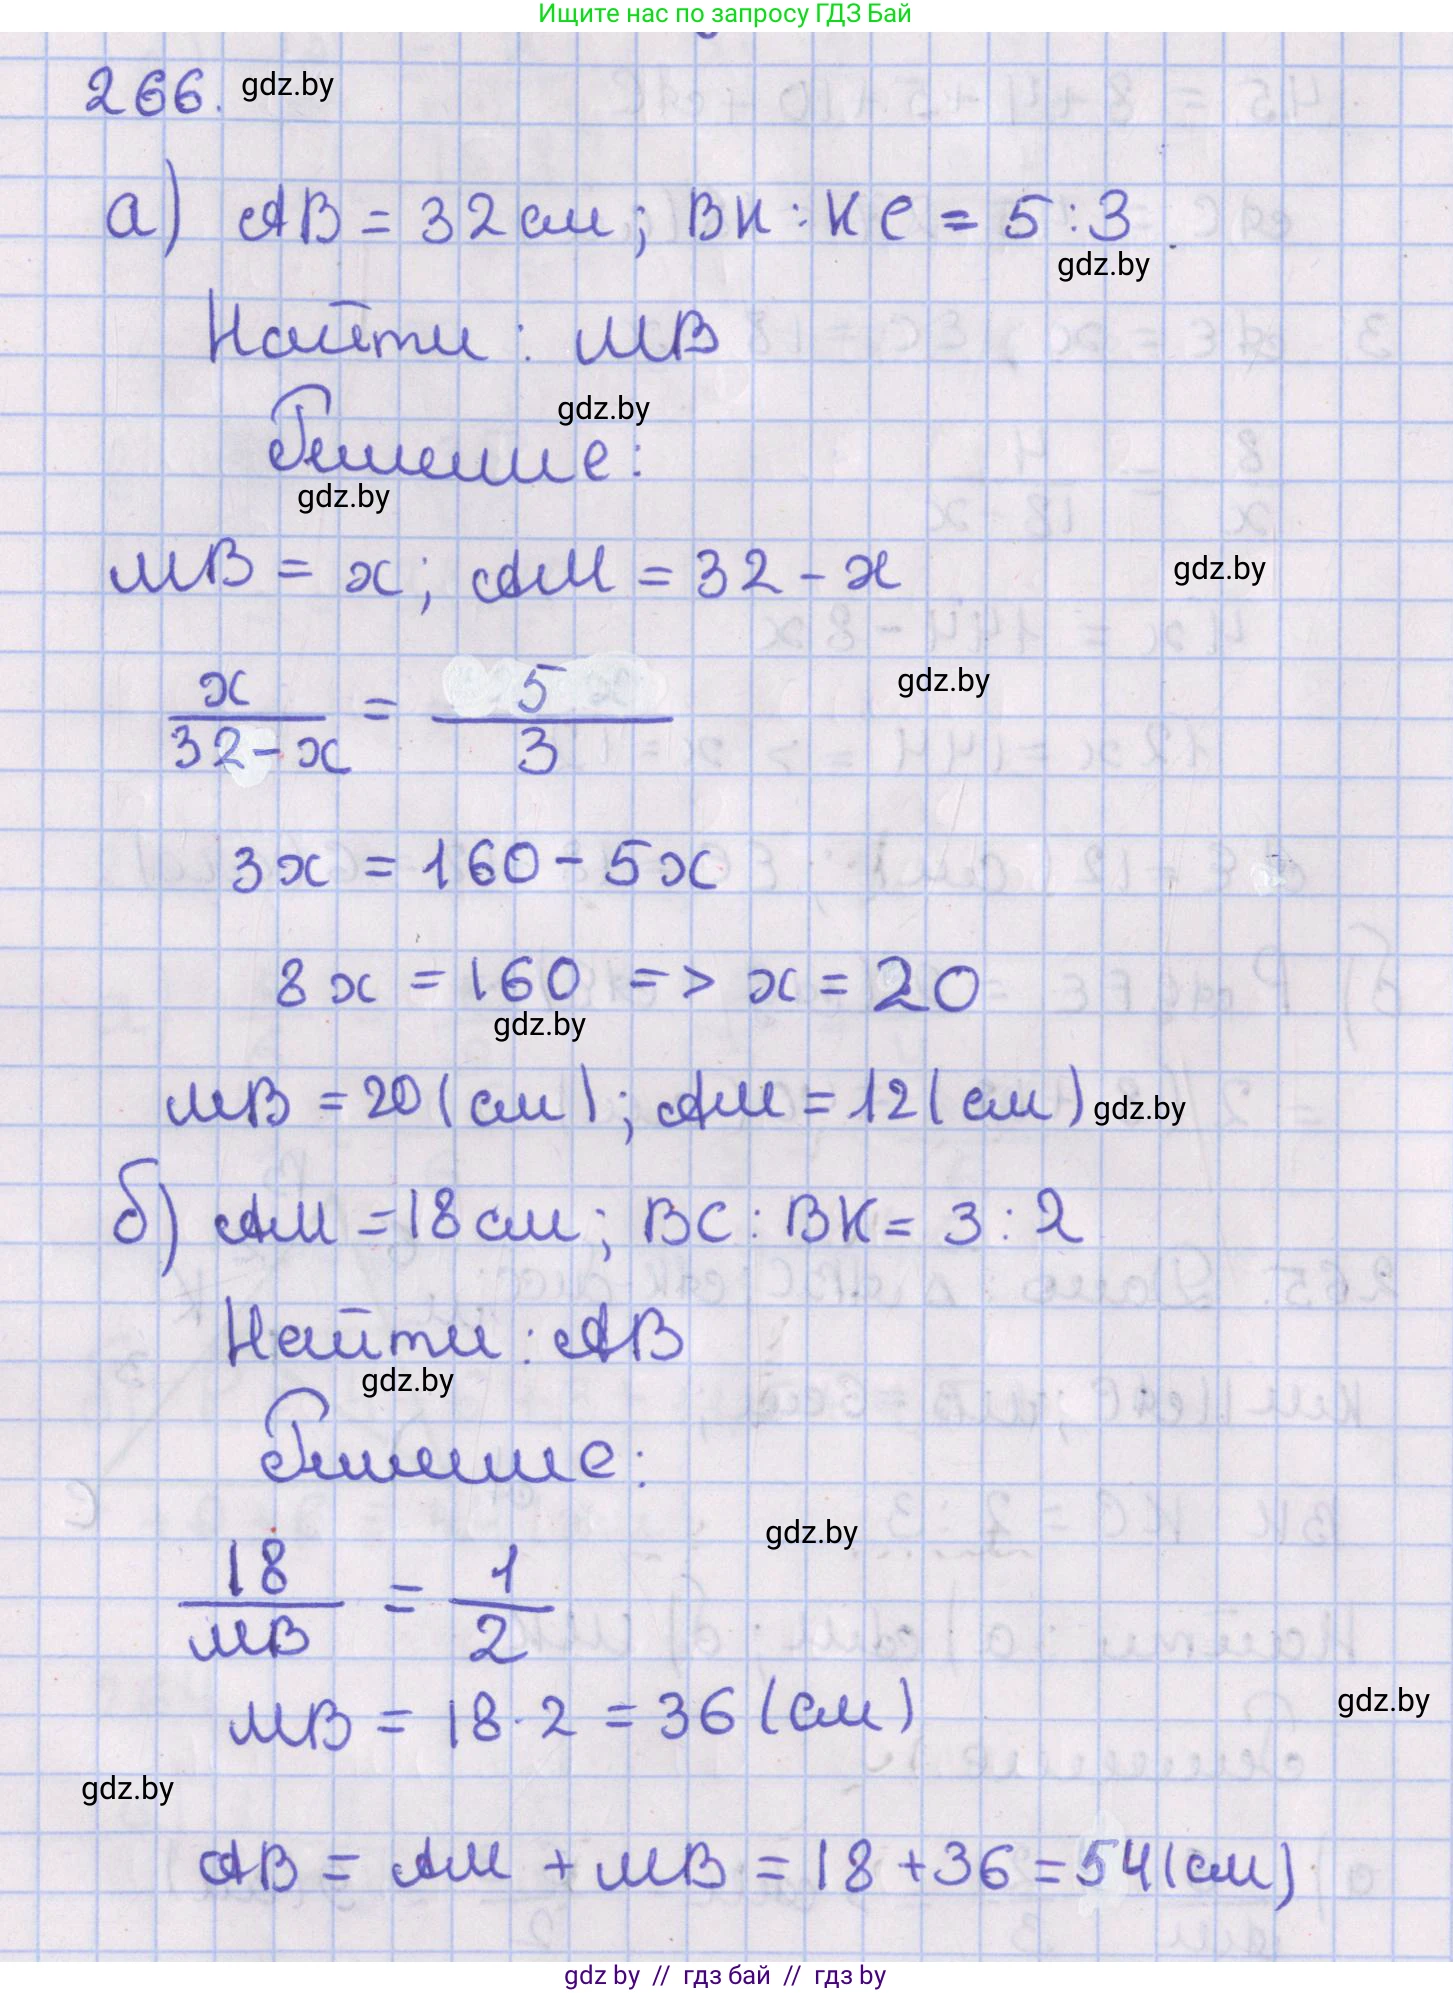 Ищите нас по запросу ГДЗ Бай
266. gdz.by
а) AB = 32 см; BK : KC = 5 : 3.
gdz.by
Найти : MB
gdz.by
Решение:
gdz.by
MB = x; AM = 32 - x
gdz.by
x/(32-x) = 5/3
gdz.by
3x = 160 - 5x
8x = 160 => x = 20
gdz.by
MB = 20 (см); AM = 12 (см) gdz.by
б) AM = 18 см; BC : BK = 3 : 2
Найти : AB
gdz.by
Решение:
gdz.by
18/MB = 1/2
MB = 18 · 2 = 36 (см)
gdz.by
gdz.by
AB = AM + MB = 18 + 36 = 54 (см)
gdz by // гдз бай // гдз by